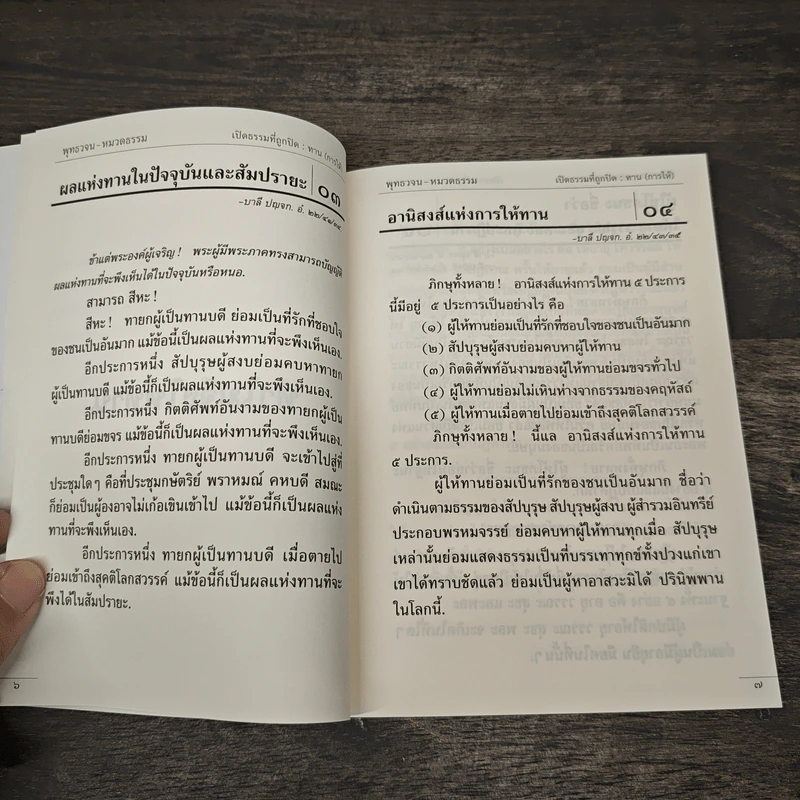 พุทธวจน-หมวดธรรม
เปิดธรรมที่ถูกปิด : ทาน (การให้)
ผลแห่งทานในปัจจุบันและสัมปรายะ
๐๓
-บาลี ปญฺจก. อํ. ๒๒/๔๑/๓๔.
ข้าแต่พระองค์ผู้เจริญ ! พระผู้มีพระภาคทรงสามารถบัญญัติ
ผลแห่งทานที่จะพึงเห็นได้ในปัจจุบันหรือหนอ.
สามารถ สีหะ !
สีหะ ! ทายกผู้เป็นทานบดี ย่อมเป็นที่รักที่ชอบใจ
ของชนเป็นอันมาก แม้ข้อนี้เป็นผลแห่งทานที่จะพึงเห็นเอง.
อีกประการหนึ่ง สัปบุรุษผู้สงบย่อมคบหาทายก
ผู้เป็นทานบดี แม้ข้อนี้ก็เป็นผลแห่งทานที่จะพึงเห็นเอง.
อีกประการหนึ่ง กิตติศัพท์อันงามของทายกผู้เป็น
ทานบดีย่อมขจร แม้ข้อนี้ก็เป็นผลแห่งทานที่จะพึงเห็นเอง.
อีกประการหนึ่ง ทายกผู้เป็นทานบดี จะเข้าไปสู่ที่
ประชุมใดๆ คือที่ประชุมกษัตริย์ พราหมณ์ คหบดี สมณะ
ก็ย่อมเป็นผู้องอาจไม่เก้อเขินเข้าไป แม้ข้อนี้ก็เป็นผลแห่ง
ทานที่จะพึงเห็นเอง.
อีกประการหนึ่ง ทายกผู้เป็นทานบดี เมื่อตายไป
ย่อมเข้าถึงสุคติโลกสวรรค์ แม้ข้อนี้ก็เป็นผลแห่งทานที่จะ
พึงได้ในสัมปรายะ.
๖
พุทธวจน-หมวดธรรม
เปิดธรรมที่ถูกปิด : ทาน (การให้)
อานิสงส์แห่งการให้ทาน
๐๔
-บาลี ปญฺจก. อํ. ๒๒/๔๓/๓๕.
ภิกษุทั้งหลาย ! อานิสงส์แห่งการให้ทาน ๕ ประการ
นี้มีอยู่ ๕ ประการเป็นอย่างไร คือ
(๑) ผู้ให้ทานย่อมเป็นที่รักที่ชอบใจของชนเป็นอันมาก
(๒) สัปบุรุษผู้สงบย่อมคบหาผู้ให้ทาน
(๓) กิตติศัพท์อันงามของผู้ให้ทานย่อมขจรทั่วไป
(๔) ผู้ให้ทานย่อมไม่เหินห่างจากธรรมของคฤหัสถ์
(๕) ผู้ให้ทานเมื่อตายไปย่อมเข้าถึงสุคติโลกสวรรค์
ภิกษุทั้งหลาย ! นี้แล อานิสงส์แห่งการให้ทาน
๕ ประการ.
ผู้ให้ทานย่อมเป็นที่รักของชนเป็นอันมาก ชื่อว่า
ดำเนินตามธรรมของสัปบุรุษ สัปบุรุษผู้สงบ ผู้สำรวมอินทรีย์
ประกอบพรหมจรรย์ ย่อมคบหาผู้ให้ทานทุกเมื่อ สัปบุรุษ
เหล่านั้นย่อมแสดงธรรมเป็นที่บรรเทาทุกข์ทั้งปวงแก่เขา
เขาได้ทราบชัดแล้ว ย่อมเป็นผู้หาอาสวะมิได้ ปรินิพพาน
ในโลกนี้.
๗